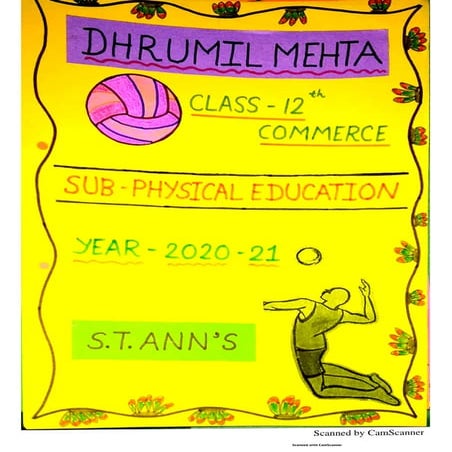 DHRUMIL MEHTA
CLASS - 12th
COMMERCE
SUB - PHYSICAL EDUCATION
YEAR - 2020 - 21
S.T. ANN'S
Scanned by CamScanner
Scanned with CamScanner